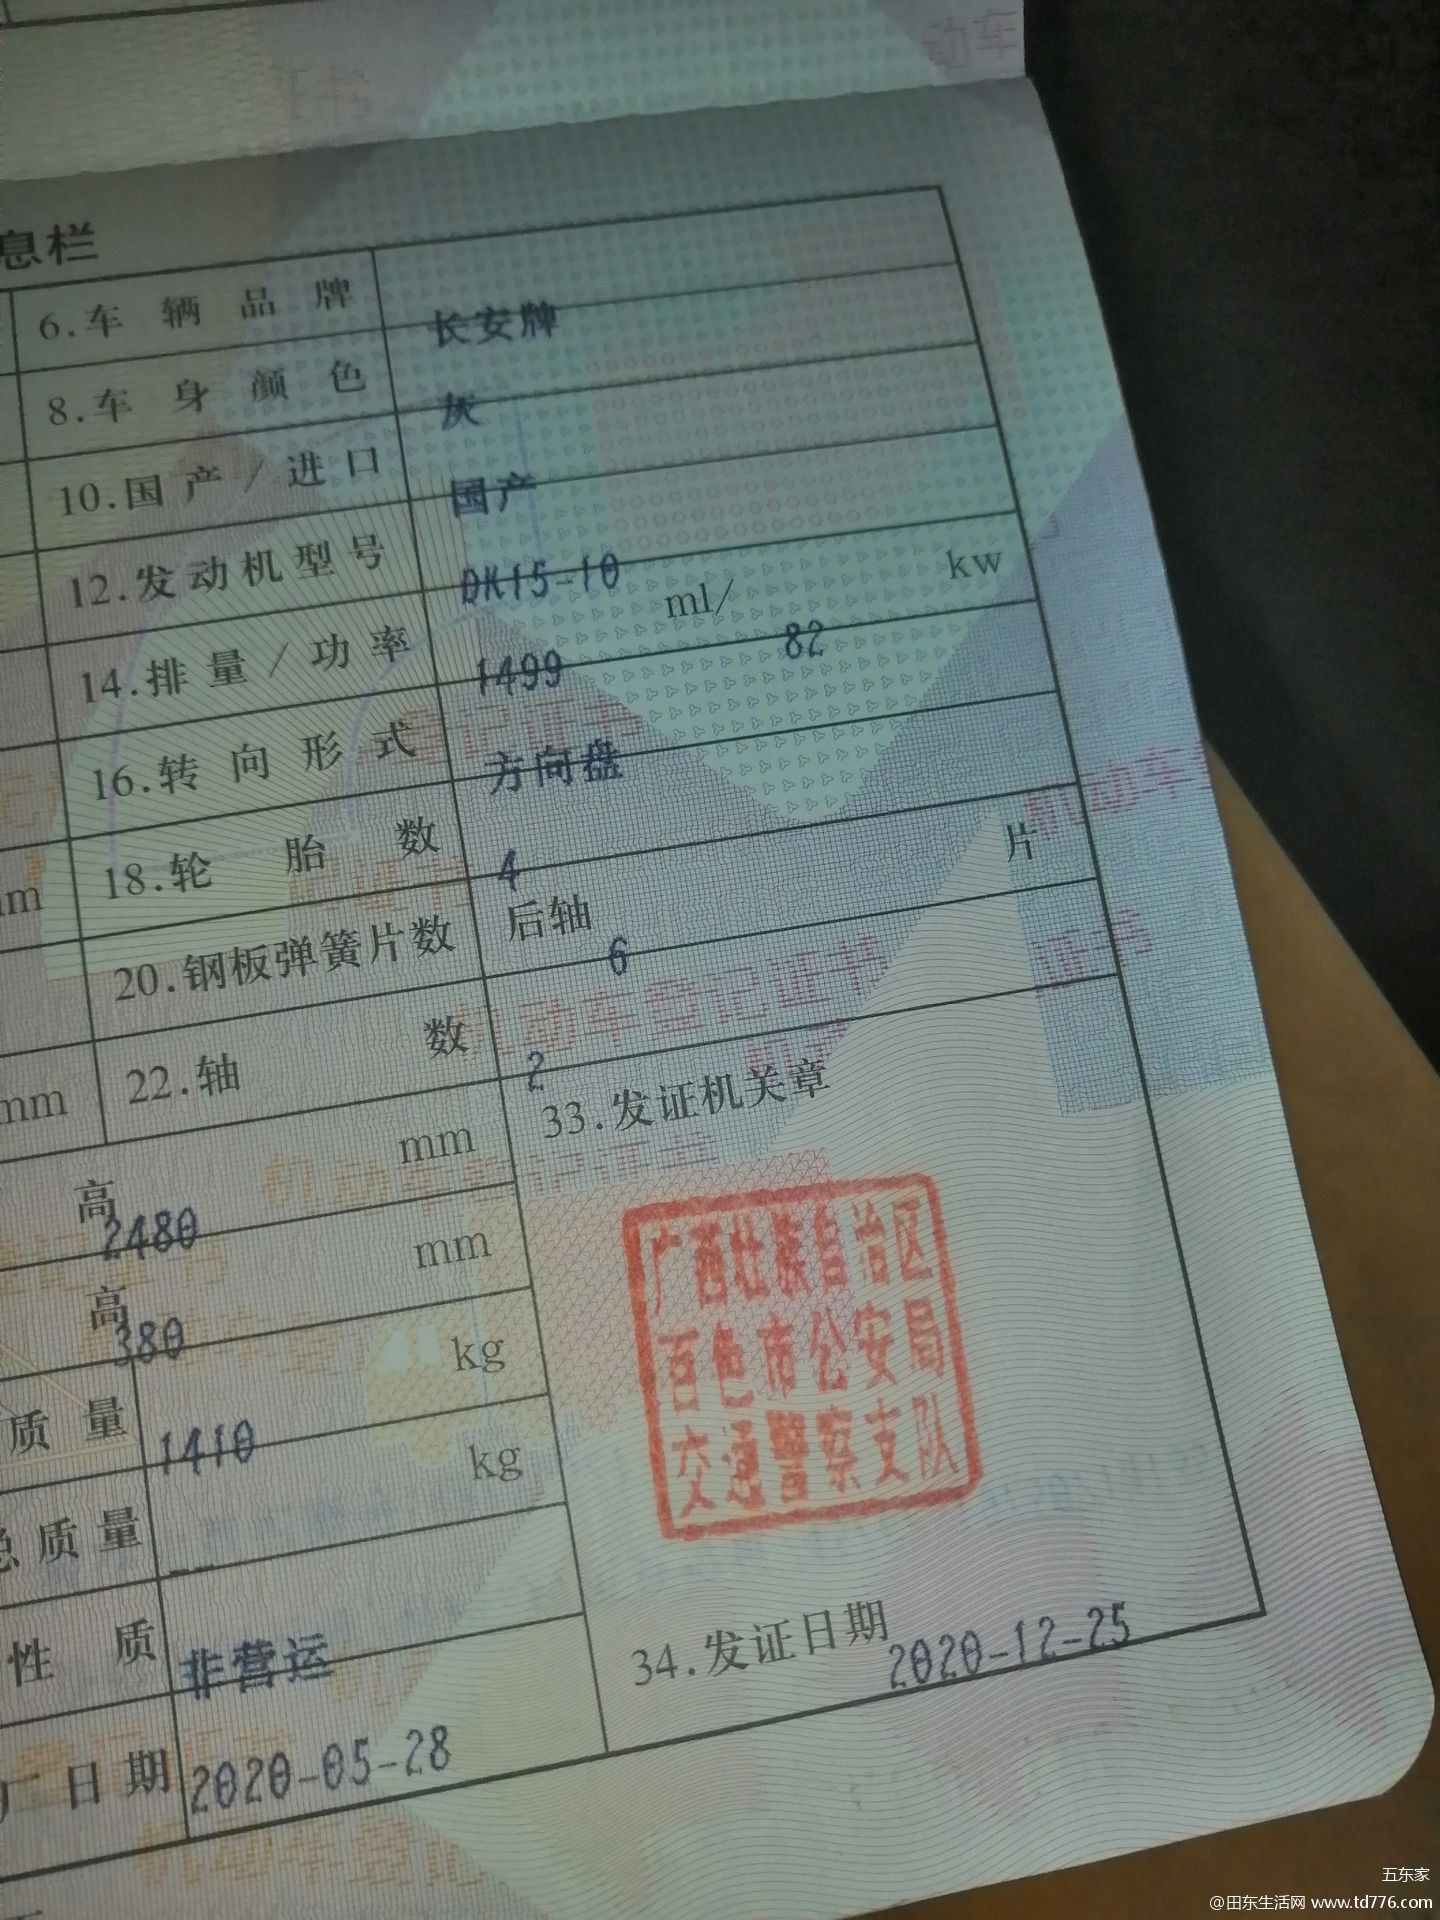 息栏
6.车辆品牌 长安牌
8.车身颜色 灰
10.国产/进口 国产
12.发动机型号 DK15-10
14.排量/功率 1499 ml/ 82 kw
16.转向形式 方向盘
mm 18.轮胎数 4
20.钢板弹簧片数 后轴 6 片
mm 22.轴数 2
高 2480 mm
33.发证机关章
高 380 mm
质量 1410 kg
总质量 -- kg
广西壮族自治区
百色市公安局
交通警察支队
性质 非营运
日期 2020-05-28
34.发证日期 2020-12-25
五东家
@田东生活网 www.td776.com